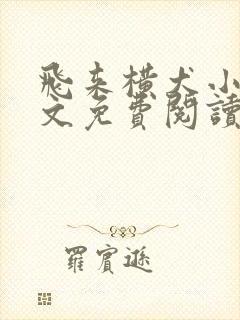 飛来横犬小
文免費閱讀
羅賓遜